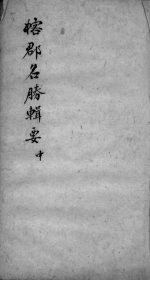 榕郡名勝輯要中